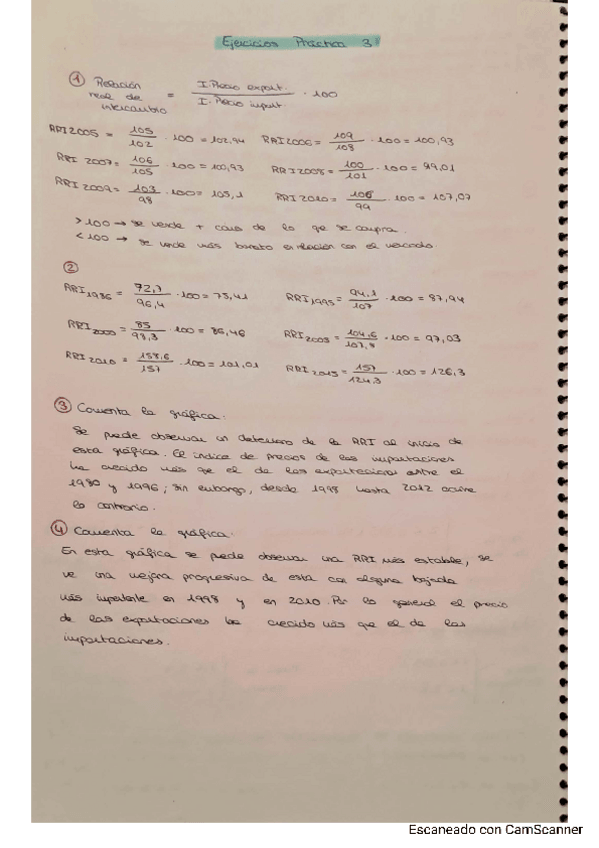 Ejercicios Práctica 3
① Relación real de intercambio = I. Precio export. / I. Precio import. · 100
RRI 2005 = 105/102 · 100 = 102,94 RRI 2006 = 109/108 · 100 = 100,93
RRI 2007 = 106/105 · 100 = 100,93 RRI 2008 = 100/101 · 100 = 99,01
RRI 2009 = 103/98 · 100 = 105,1 RRI 2010 = 106/99 · 100 = 107,07
> 100 → se vende + caro de lo que se compra.
< 100 → se vende más barato en relación con el mercado
②
RRI 1986 = 72,7/96,4 · 100 = 75,41 RRI 1995 = 94,1/107 · 100 = 87,94
RRI 2000 = 85/98,3 · 100 = 86,46 RRI 2005 = 104,6/107,8 · 100 = 97,03
RRI 2010 = 158,6/157 · 100 = 101,01 RRI 2015 = 157/124,3 · 100 = 126,3
③ Comenta la gráfica.
Se puede observar un deterioro de la RRI al inicio de
esta gráfica. El índice de precios de las importaciones
ha crecido más que el de las exportaciones entre el
1980 y 1996; sin embargo, desde 1998 hasta 2012 ocurre
lo contrario.
④ Comenta la gráfica.
En esta gráfica se puede observar una RRI más estable, se
ve una mejora progresiva de esta con alguna bajada
más importante en 1998 y en 2010. Por lo general el precio
de las exportaciones ha crecido más que el de las
importaciones.
Escaneado con CamScanner